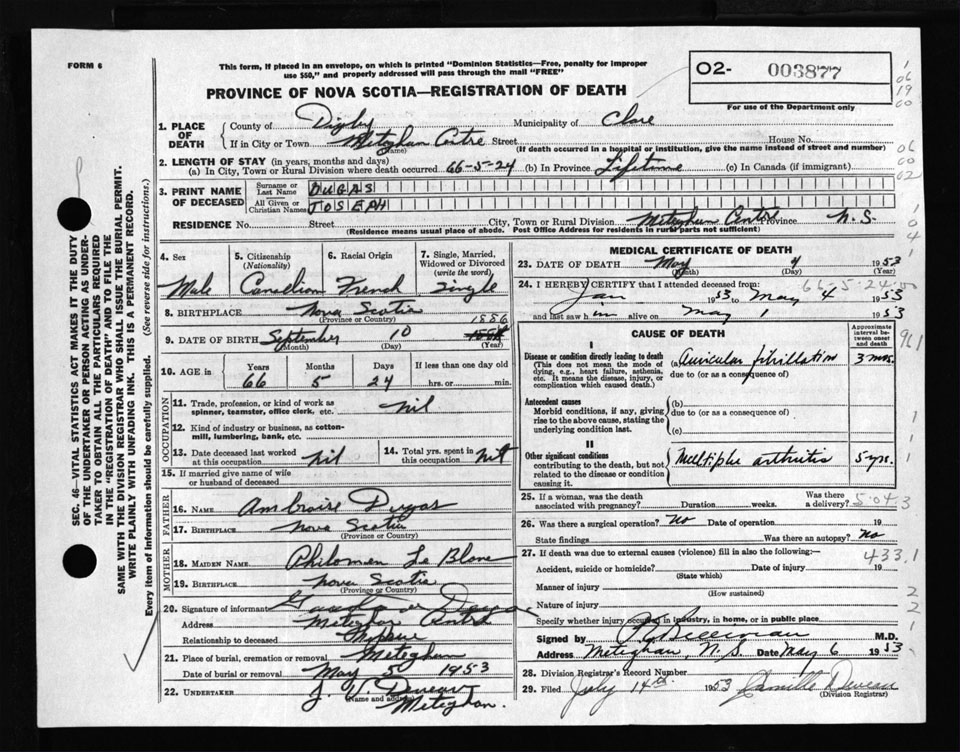 FORM 6
This form, if placed in an envelope, on which is printed "Dominion Statistics—Free, penalty for improper
use $50," and properly addressed will pass through the mail "FREE"
02- 003877
For use of the Department only
PROVINCE OF NOVA SCOTIA—REGISTRATION OF DEATH
1. PLACE OF DEATH
County of Digby Municipality of Clare
If in City or Town Meteghan Centre Street House No.
(Name) (If death occurred in a hospital or institution, give the name instead of street and number)
2. LENGTH OF STAY (in years, months and days)
(a) In City, Town or Rural Division where death occurred 66-5-24 (b) In Province Lifetime (c) In Canada (if immigrant)
3. PRINT NAME OF DECEASED
Surname or Last Name DUGAS
All Given or Christian Names JOSEPH
RESIDENCE No. Street City, Town or Rural Division Meteghan Centre Province N.S.
(Residence means usual place of abode. Post Office Address for residents in rural parts not sufficient)
4. Sex Male
5. Citizenship (Nationality) Canadian
6. Racial Origin French
7. Single, Married, Widowed or Divorced (write the word) Single
8. BIRTHPLACE Nova Scotia
(Province or Country)
1886
9. DATE OF BIRTH September 10
(Month) (Day) (Year)
10. AGE in Years Months Days If less than one day old
66 5 24 hrs. or min.
OCCUPATION
11. Trade, profession, or kind of work as spinner, teamster, office clerk, etc. nil
12. Kind of industry or business, as cotton-mill, lumbering, bank, etc.
13. Date deceased last worked at this occupation nil
14. Total yrs. spent in this occupation nil
15. If married give name of wife or husband of deceased
FATHER
16. NAME Ambroise Dugas
17. BIRTHPLACE Nova Scotia
(Province or Country)
MOTHER
18. MAIDEN NAME Philomen Le Blanc
19. BIRTHPLACE Nova Scotia
(Province or Country)
20. Signature of informant
Address Meteghan Centre
Relationship to deceased
21. Place of burial, cremation or removal Meteghan
Date of burial or removal May 5 1953
22. UNDERTAKER J. V. Deveau
(Name and address) Meteghan.
MEDICAL CERTIFICATE OF DEATH
23. DATE OF DEATH May 4 1953
(Month) (Day) (Year)
24. I HEREBY CERTIFY that I attended deceased from: 66-5-24
Jan 1953 to May 4 1953
and last saw him alive on May 1 1953
CAUSE OF DEATH
Approximate interval between onset and death
I
Disease or condition directly leading to death
(This does not mean the mode of dying, e.g., heart failure, asthenia, etc. It means the disease, injury, or complication which caused death.)
(a) Auricular fibrillation 3 mos.
due to (or as a consequence of)
Antecedent causes
Morbid conditions, if any, giving rise to the above cause, stating the underlying condition last.
(b)
due to (or as a consequence of)
(c)
II
Other significant conditions
contributing to the death, but not related to the disease or condition causing it.
Multiple arthritis 5 yrs.
25. If a woman, was the death associated with pregnancy? Duration weeks. Was there a delivery?
26. Was there surgical operation? No Date of operation 19
State findings Was there an autopsy? No
27. If death was due to external causes (violence) fill in also the following:— 433.1
Accident, suicide or homicide? Date of injury 19
(State which)
Manner of injury
(How sustained)
Nature of injury
Specify whether injury occurred in industry, in home, or in public place
Signed by M.D.
Address Meteghan, N.S. Date May 6 1953
28. Division Registrar's Record Number
29. Filed July 14th. 1953 Camille Deveau
(Division Registrar)
SEC. 46—VITAL STATISTICS ACT MAKES IT THE DUTY
OF THE UNDERTAKER OR PERSON ACTING AS UNDER-
TAKER TO OBTAIN ALL THE PARTICULARS REQUIRED
IN THE "REGISTRATION OF DEATH" AND TO FILE THE
SAME WITH THE DIVISION REGISTRAR WHO SHALL ISSUE THE BURIAL PERMIT.
WRITE PLAINLY WITH UNFADING INK. THIS IS A PERMANENT RECORD.
Every item of information should be carefully supplied. (See reverse side for instructions.)